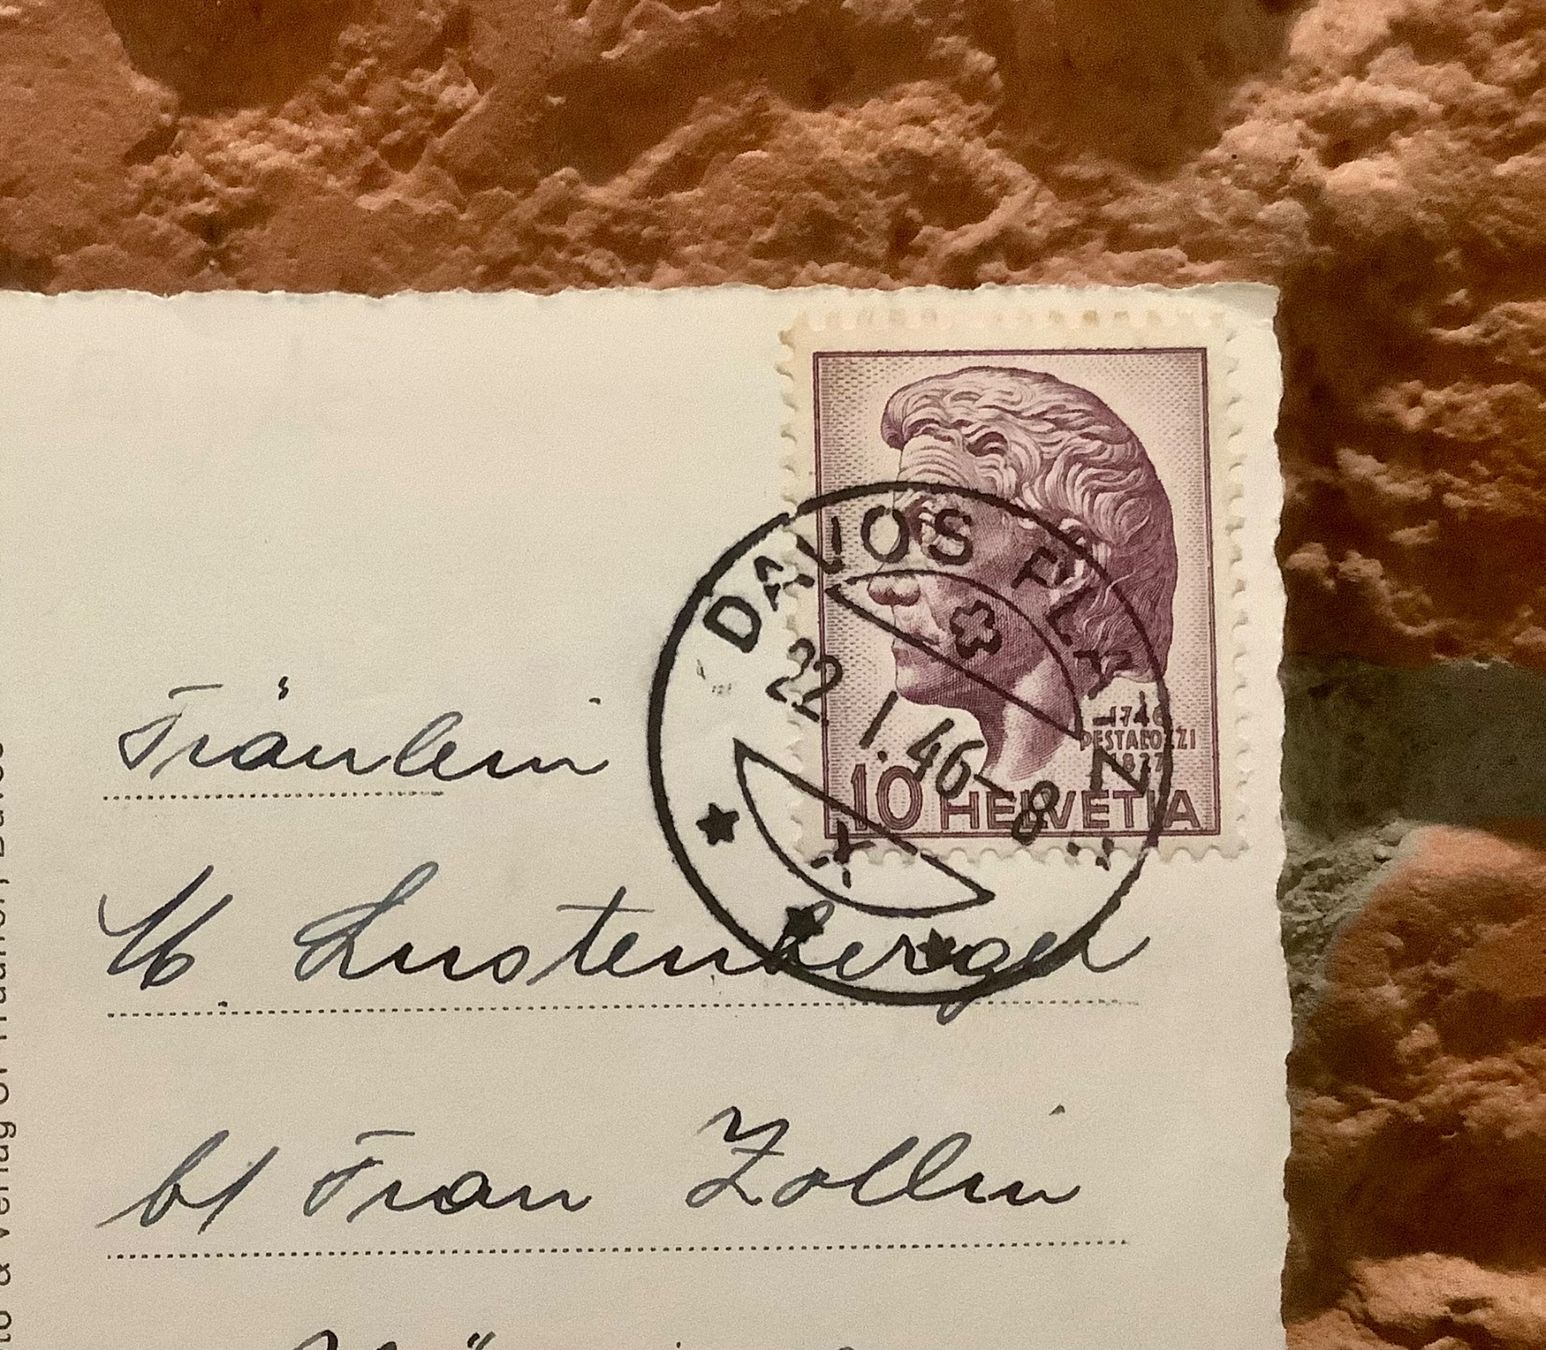 DAVOS PLATZ
22.I.46-8
X
1746
PESTALOZZI
1827
10 HELVETIA
Fräulein
Lustenberger
b/ Frau Zollin
to & Verlag